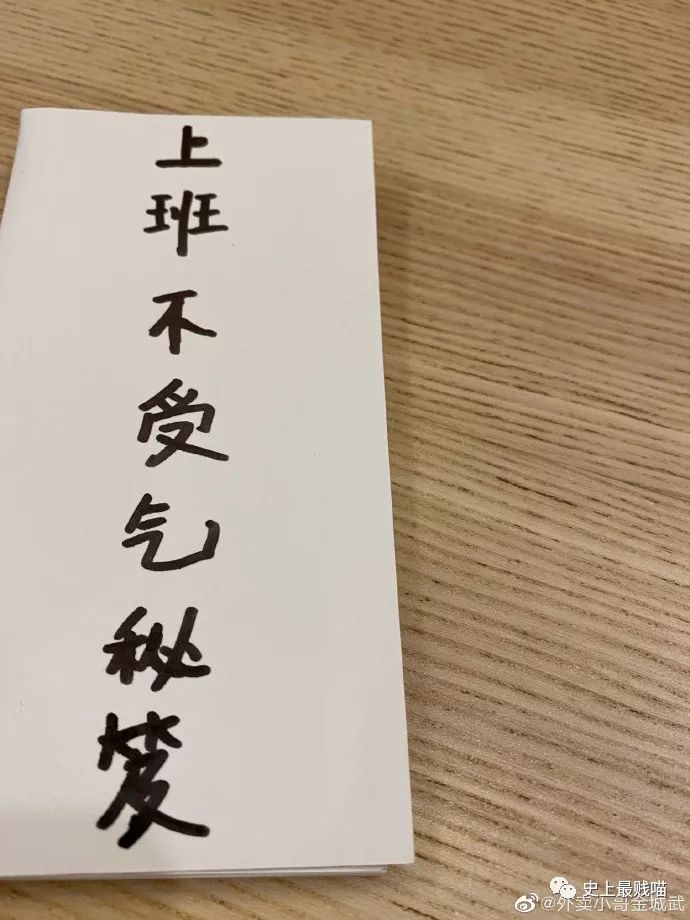 上班不受气秘笈
史上最贱喵
@外卖小哥金城武